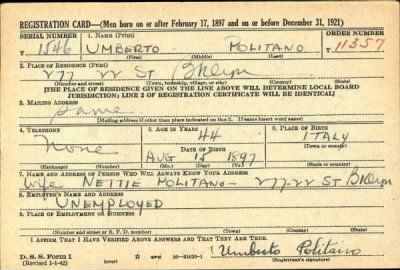 REGISTRATION CARD—(Men born on or after February 17, 1897 and on or before December 31, 1921)
SERIAL NUMBER 1. NAME (Print) ORDER NUMBER
T 1546 UMBERTO POLITANO 11357
(First) (Middle) (Last)
2. PLACE OF RESIDENCE (Print)
277-22 ST Bklyn
(Number and street) (Town, township, village, or city) (County) (State)
[THE PLACE OF RESIDENCE GIVEN ON THE LINE ABOVE WILL DETERMINE LOCAL BOARD
JURISDICTION; LINE 2 OF REGISTRATION CERTIFICATE WILL BE IDENTICAL]
3. MAILING ADDRESS
Same
[Mailing address if other than place indicated on line 2. If same insert word same]
4. TELEPHONE 5. AGE IN YEARS 6. PLACE OF BIRTH
44
None DATE OF BIRTH ITALY
(Town or county)
AUG 15 1897
(Exchange) (Number) (Mo.) (Day) (Yr.) (State or country)
7. NAME AND ADDRESS OF PERSON WHO WILL ALWAYS KNOW YOUR ADDRESS
Wife NETTIE POLITANO - 277-22 ST Bklyn
8. EMPLOYER'S NAME AND ADDRESS
UNEMPLOYED
9. PLACE OF EMPLOYMENT OR BUSINESS
(Number and street or R. F. D. number) (Town) (County) (State)
I AFFIRM THAT I HAVE VERIFIED ABOVE ANSWERS AND THAT THEY ARE TRUE.
D. S. S. Form 1 (over) GPO 16—21630-1 Umberto Politano
(Revised 1-1-42) (Registrant's signature)